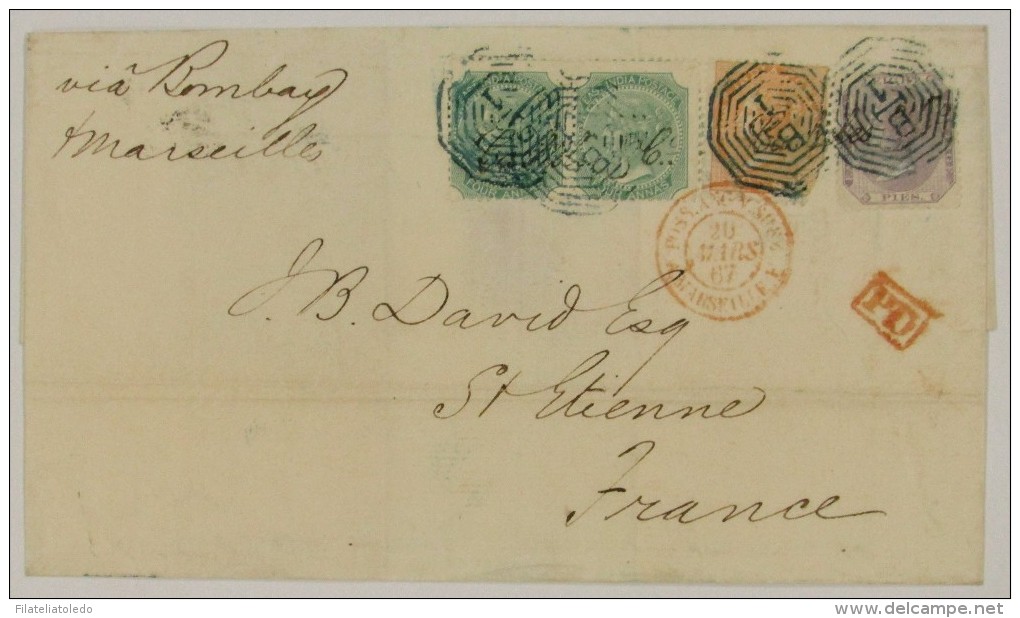 viâ Bombay
& Marseilles
INDIA POSTAGE
FOUR ANNAS
INDIA POSTAGE
FOUR ANNAS
6 PIES. 6
20
MARS
67
MARSEILLE
PD
J. B. David Esq
St Etienne
France
Filateliatoledo
delcampe.net